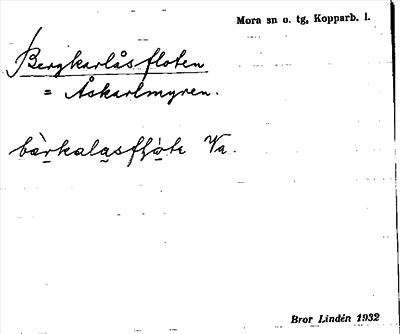 Mora sn o. tg, Kopparb. l.
Bergkarlåsfloten
= Åskarlmyren.
bàrkalasflȧtı Va.
Bror Lindén 1932